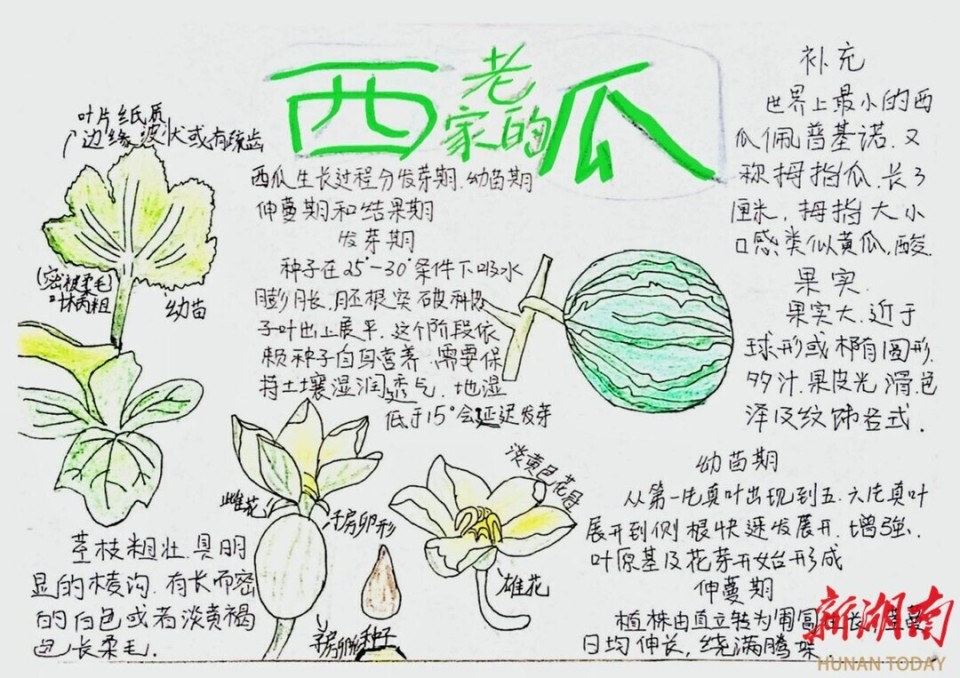 老家的西瓜
叶片纸质
边缘波状或有疏齿
密被柔毛
叶柄粗
幼苗
西瓜生长过程分发芽期.幼苗期
伸蔓期和结果期
发芽期
种子在25°-30°条件下吸水
膨胀.胚根突破种皮
子叶出土展平.这个阶段依
赖种子自身营养.需要保
持土壤湿润透气.地湿
低于15°会延迟发芽
补充
世界上最小的西
瓜佩普基诺.又
称拇指瓜.长3
厘米.拇指大小
口感类似黄瓜,酸
果实
果实大.近于
球形或椭圆形.
多汁.果皮光滑.色
泽及纹饰各式.
雌花
子房卵形
子房卵形
种子
淡黄色花冠
雄花
茎枝粗壮.具明
显的棱沟.有长而密
的白色或者淡黄褐
色长柔毛.
幼苗期
从第一片真叶出现到五.六片真叶
展开到侧根快速发展开.增强.
叶原基及花芽开始形成
伸蔓期
植株由直立转为匍匐
日均伸长,绕满腾架
新湖南
HUNAN TODAY